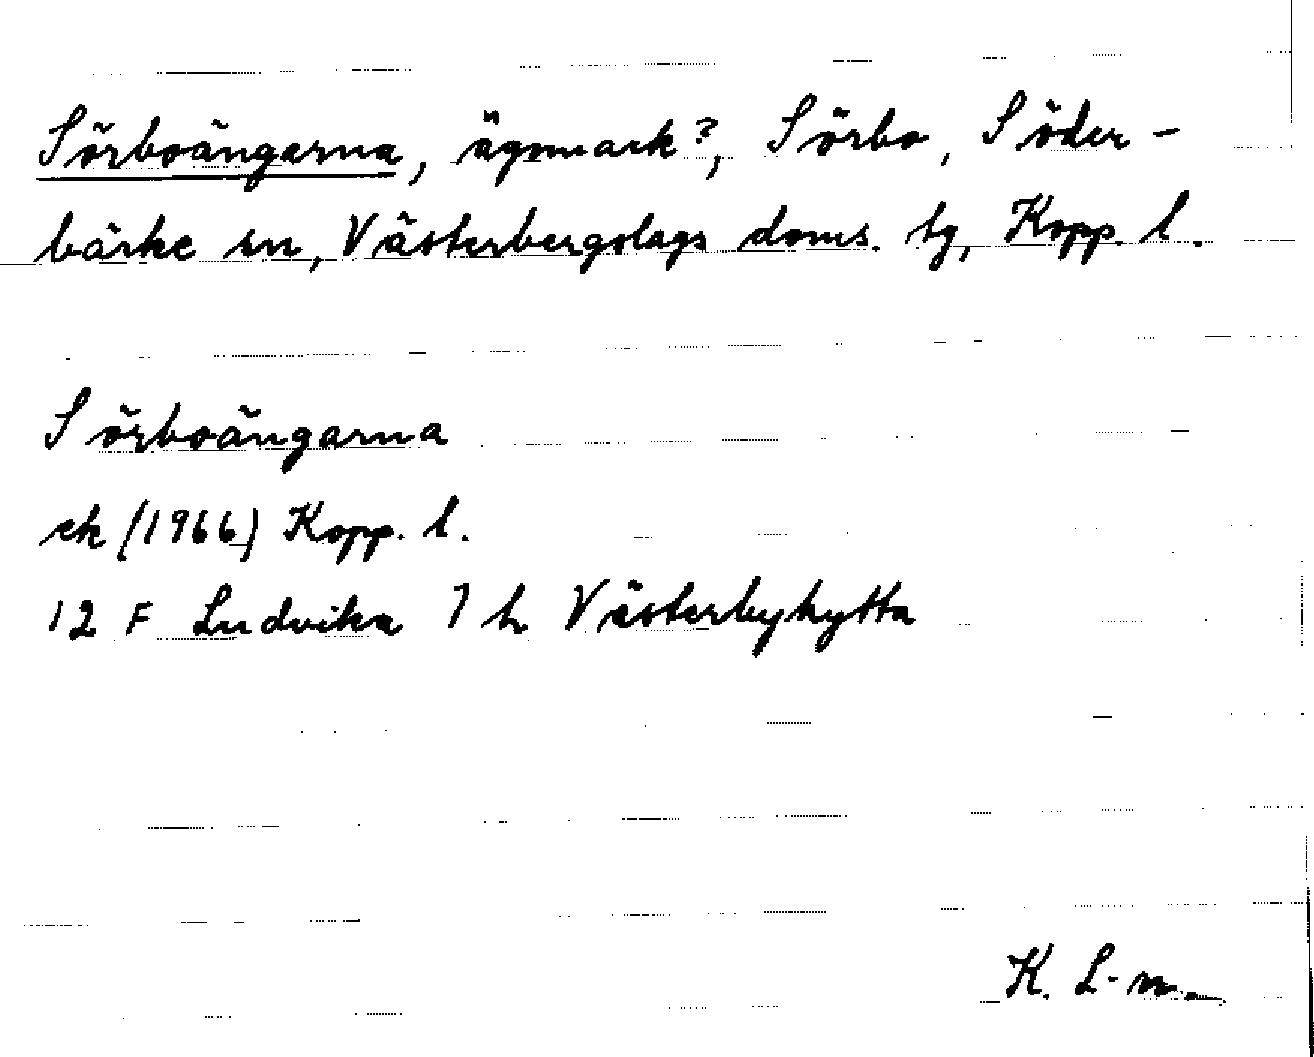 Sörboängarna, ägomark?, Sörbo, Söder-
bärke sn, Västerbergslags doms. tg, Kopp. l.
Sörboängarna
ek (1966) Kopp. l.
12 F Ludvika 7 h Västerbyhytta
K. L-m.